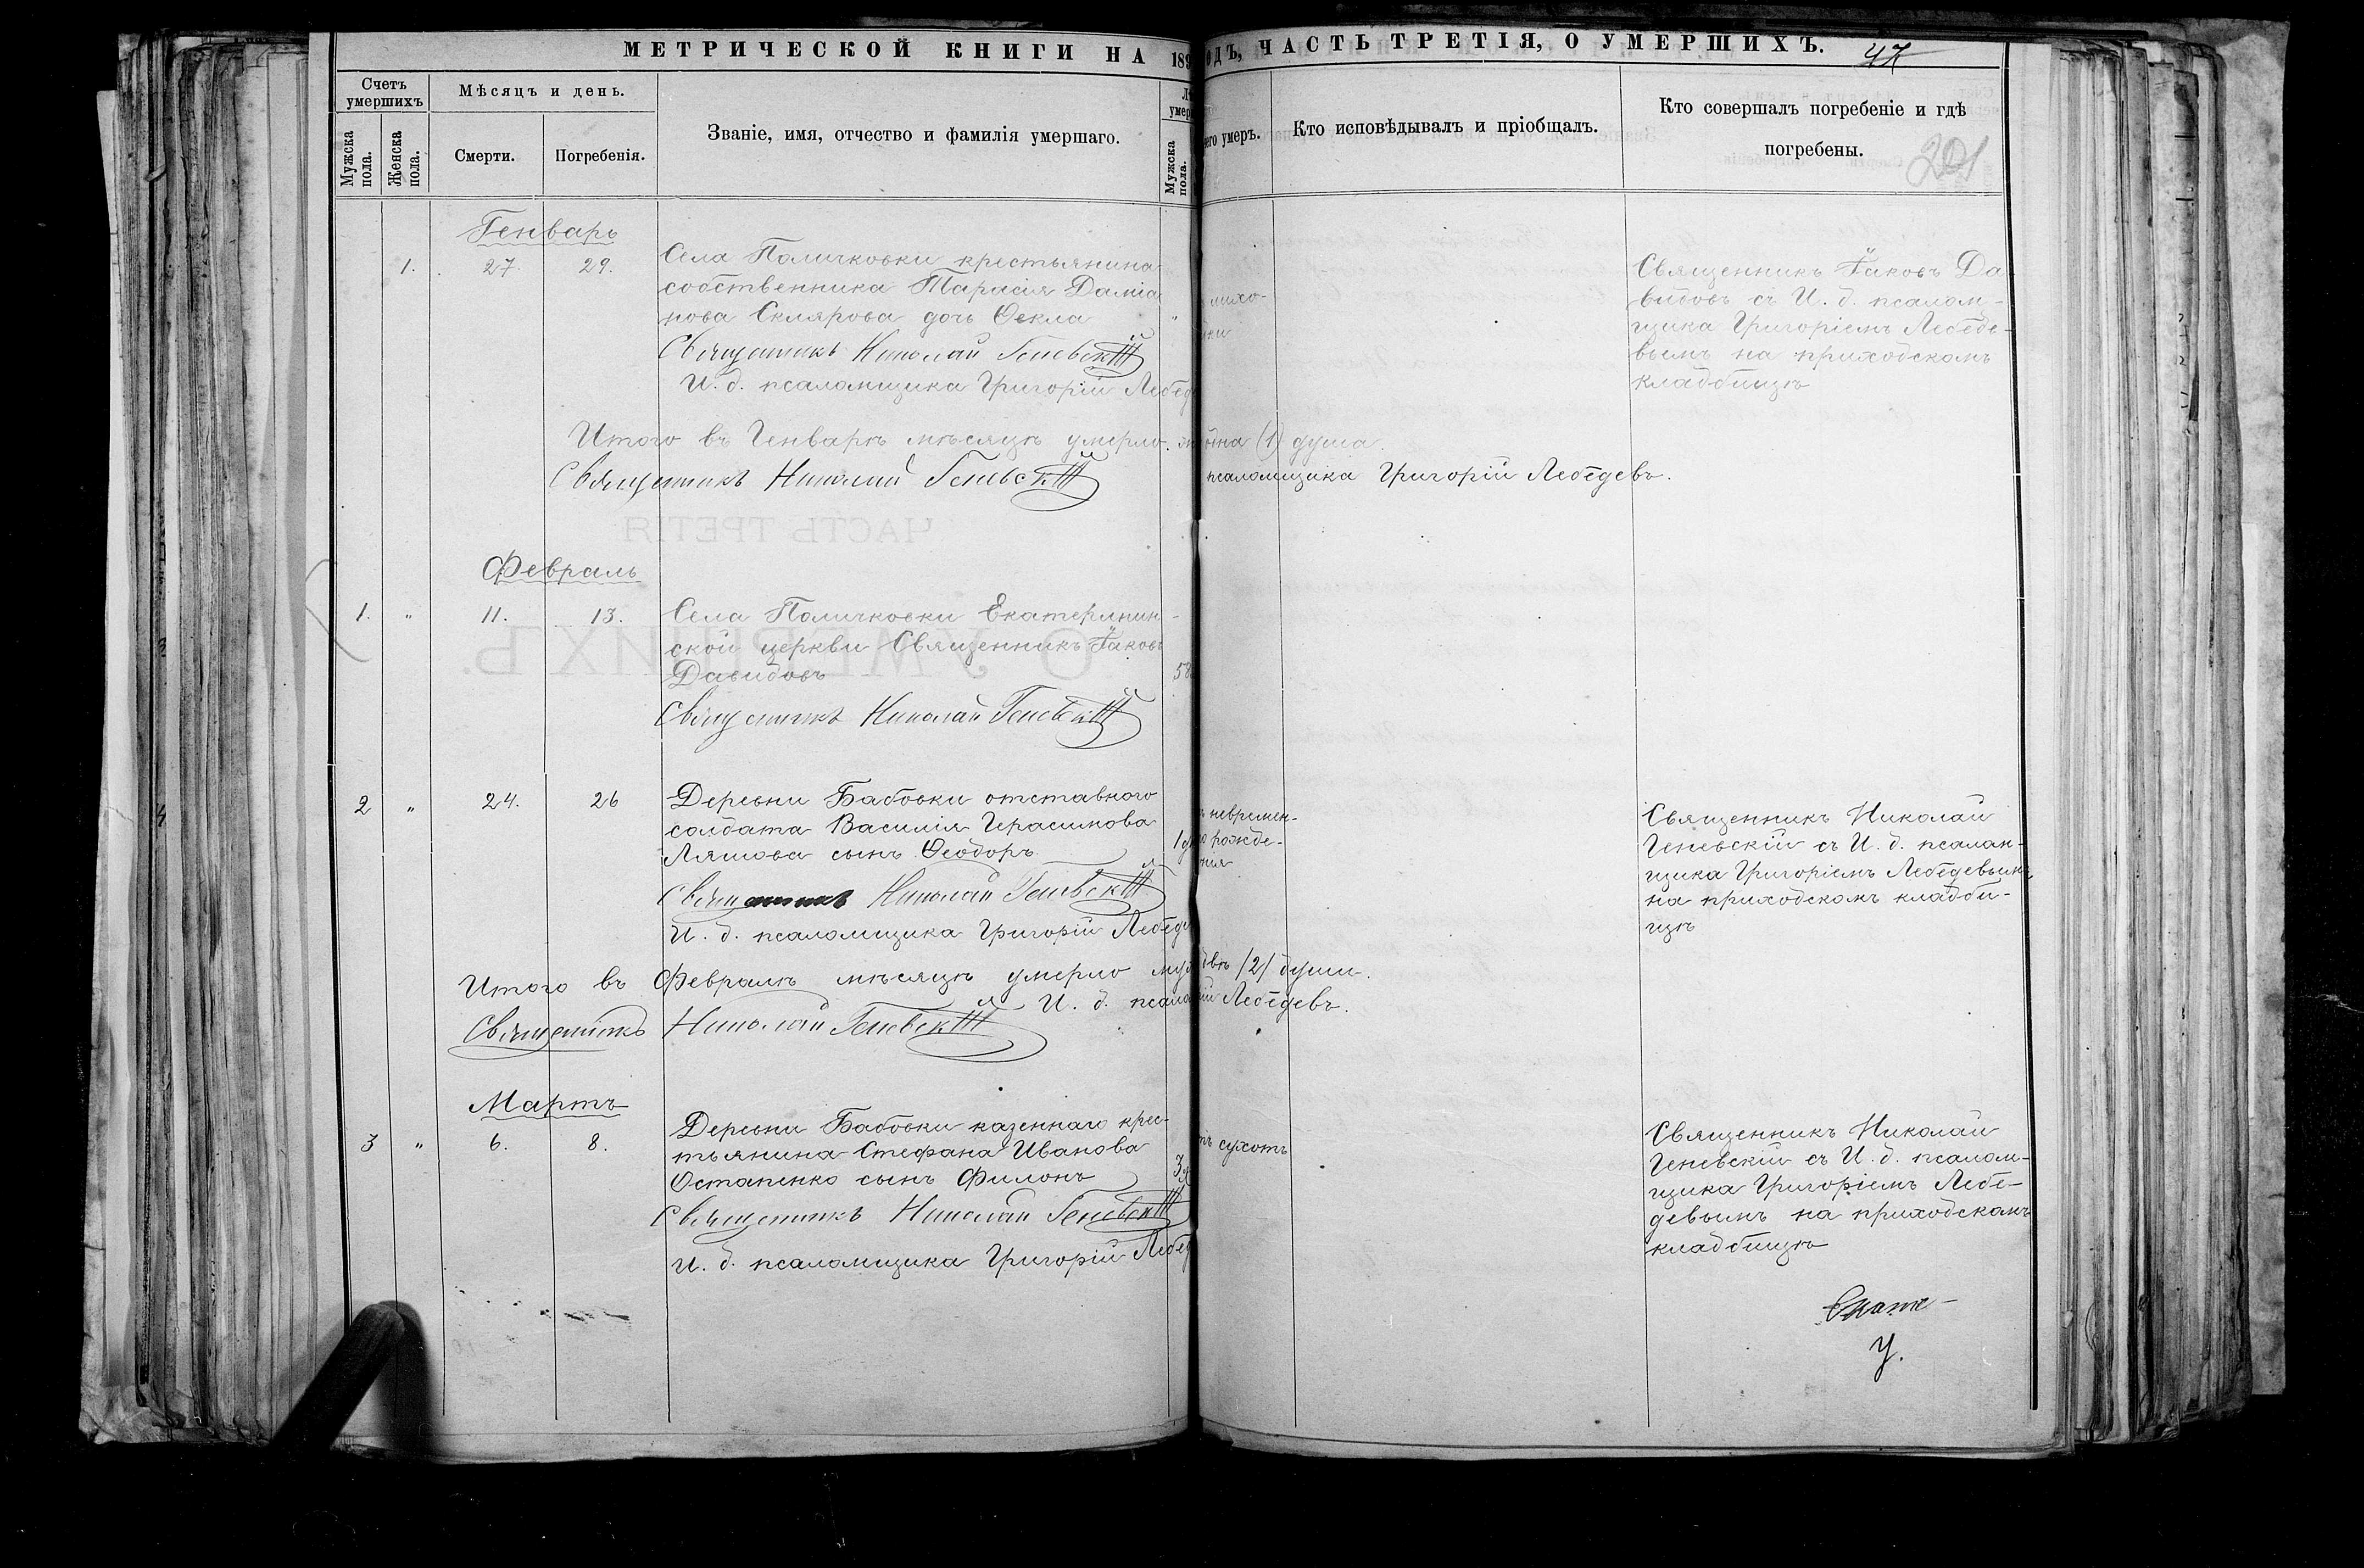 МЕТРИЧЕСКОЙ КНИГИ НА 189
ОДЪ, ЧАСТЬ ТРЕТІЯ, О УМЕРШИХЪ.
47
Счетъ умершихъ
Мужска пола.
Женска пола.
Мѣсяцъ и день.
Смерти.
Погребенія.
Званіе, имя, отчество и фамилія умершаго.
Мужска пола.
чего умеръ.
Кто исповѣдывалъ и пріобщалъ.
Кто совершалъ погребеніе и гдѣ
погребены.
201
Генварь
1. 27. 29.
Села Поличковки крестьянина
собственника Тарасія Даміа
нова Склярова дочь Ѳекла
Священникъ Николай Геневскій
И. д. псаломщика Григорій Лебед
лихо-
Священникъ Іаковъ Да
видовъ съ И. д. псалом-
щика Григоріемъ Лебеде-
вымъ на приходскомъ
кладбищѣ
Итого въ Генварѣ мѣсяцѣ умерло (1) душа.
Священникъ Николай Геневскій
псаломщика Григорій Лебедевъ.
ЧАСТЬ ТРЕТІЯ
О УМЕРШИХЪ.
Февраль
1. „ 11. 13.
Села Поличковки Екатеринин
ской церкви Священникъ Іаковъ
Давидовъ
58
Священникъ Николай Геневскій
2 „ 24. 26
Деревни Бабовки отставного
солдата Василія Герасимова
Ляшова сынъ Ѳеодоръ
Священникъ Николай Геневскій
И. д. псаломщика Григорій Лебеде
невремен-
рожде-
нія
Священникъ Николай
Геневскій съ И. д. псалом-
щика Григоріемъ Лебедевымъ
на приходскомъ кладби-
щѣ
Итого въ Февралѣ мѣсяцѣ умерло /2/ души.
И. д. Лебедевъ.
Священникъ Николай Геневскій
Мартъ
3 „ 6. 8.
Деревни Бабовки казеннаго крес-
тьянина Стефана Иванова
Остапенко сынъ Филонъ
3
Священникъ Николай Геневскій
И. д. псаломщика Григорій Лебед
сухотъ
Священникъ Николай
Геневскій съ И. д. псалом-
щика Григоріемъ Лебе-
девымъ на приходскомъ
кладбищѣ